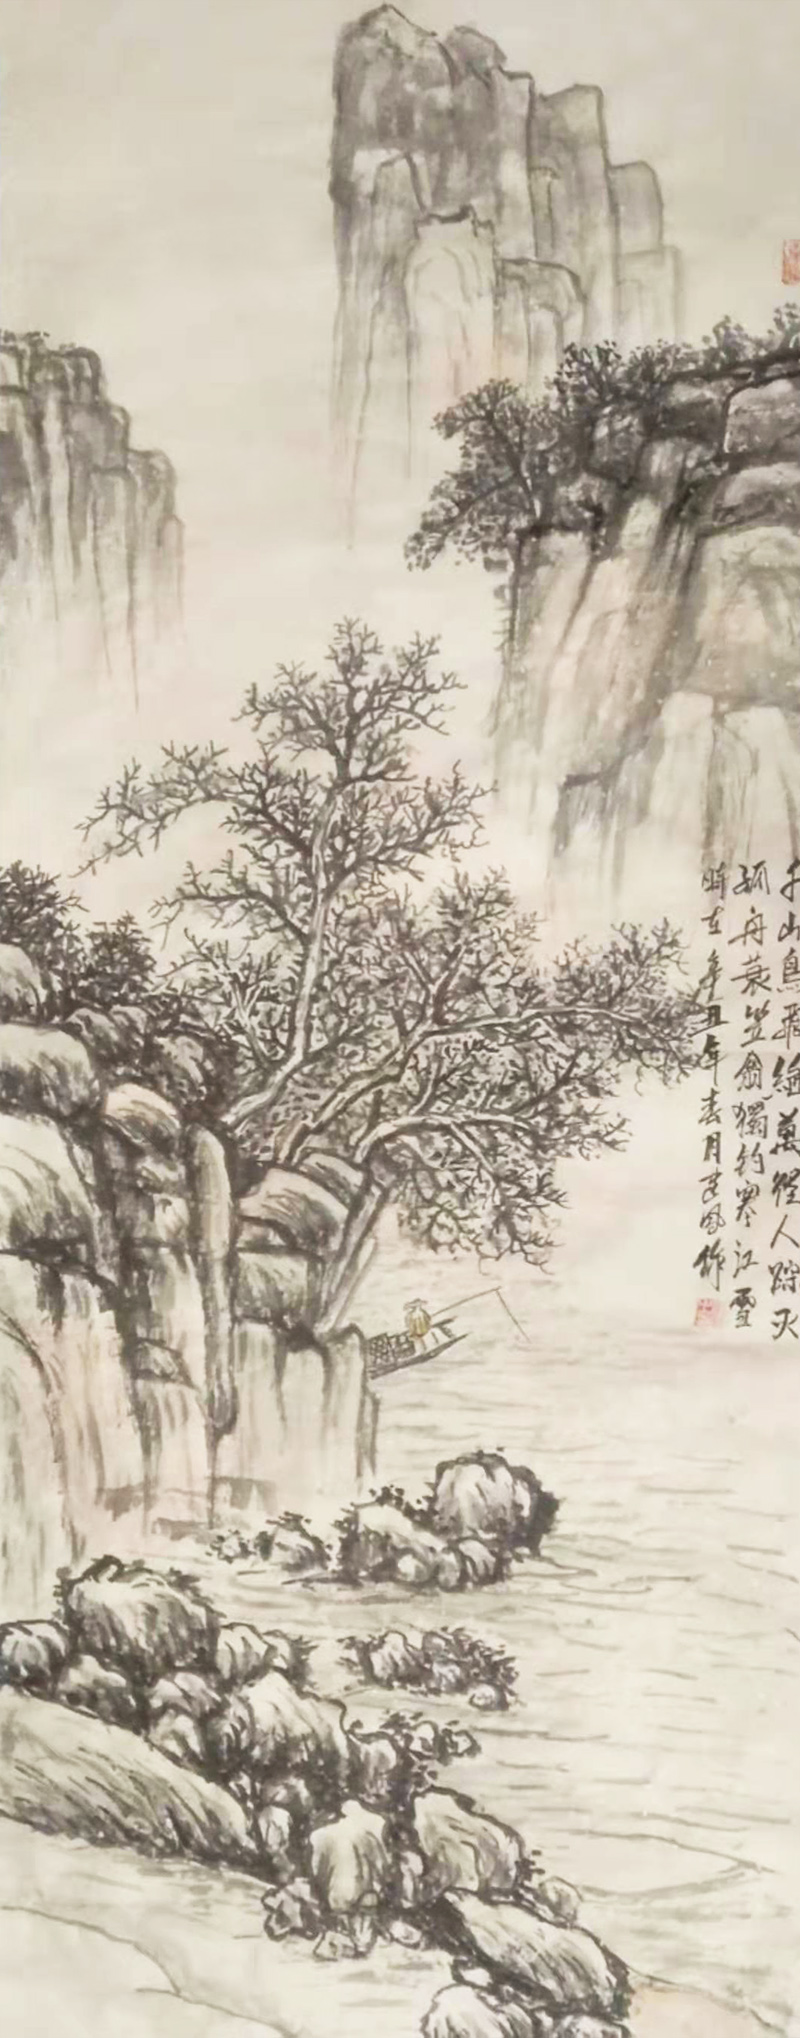 千山鳥飛絶萬徑人踪灭
孤舟蓑笠翁獨钓寒江雪
時在辛丑年春月建风作